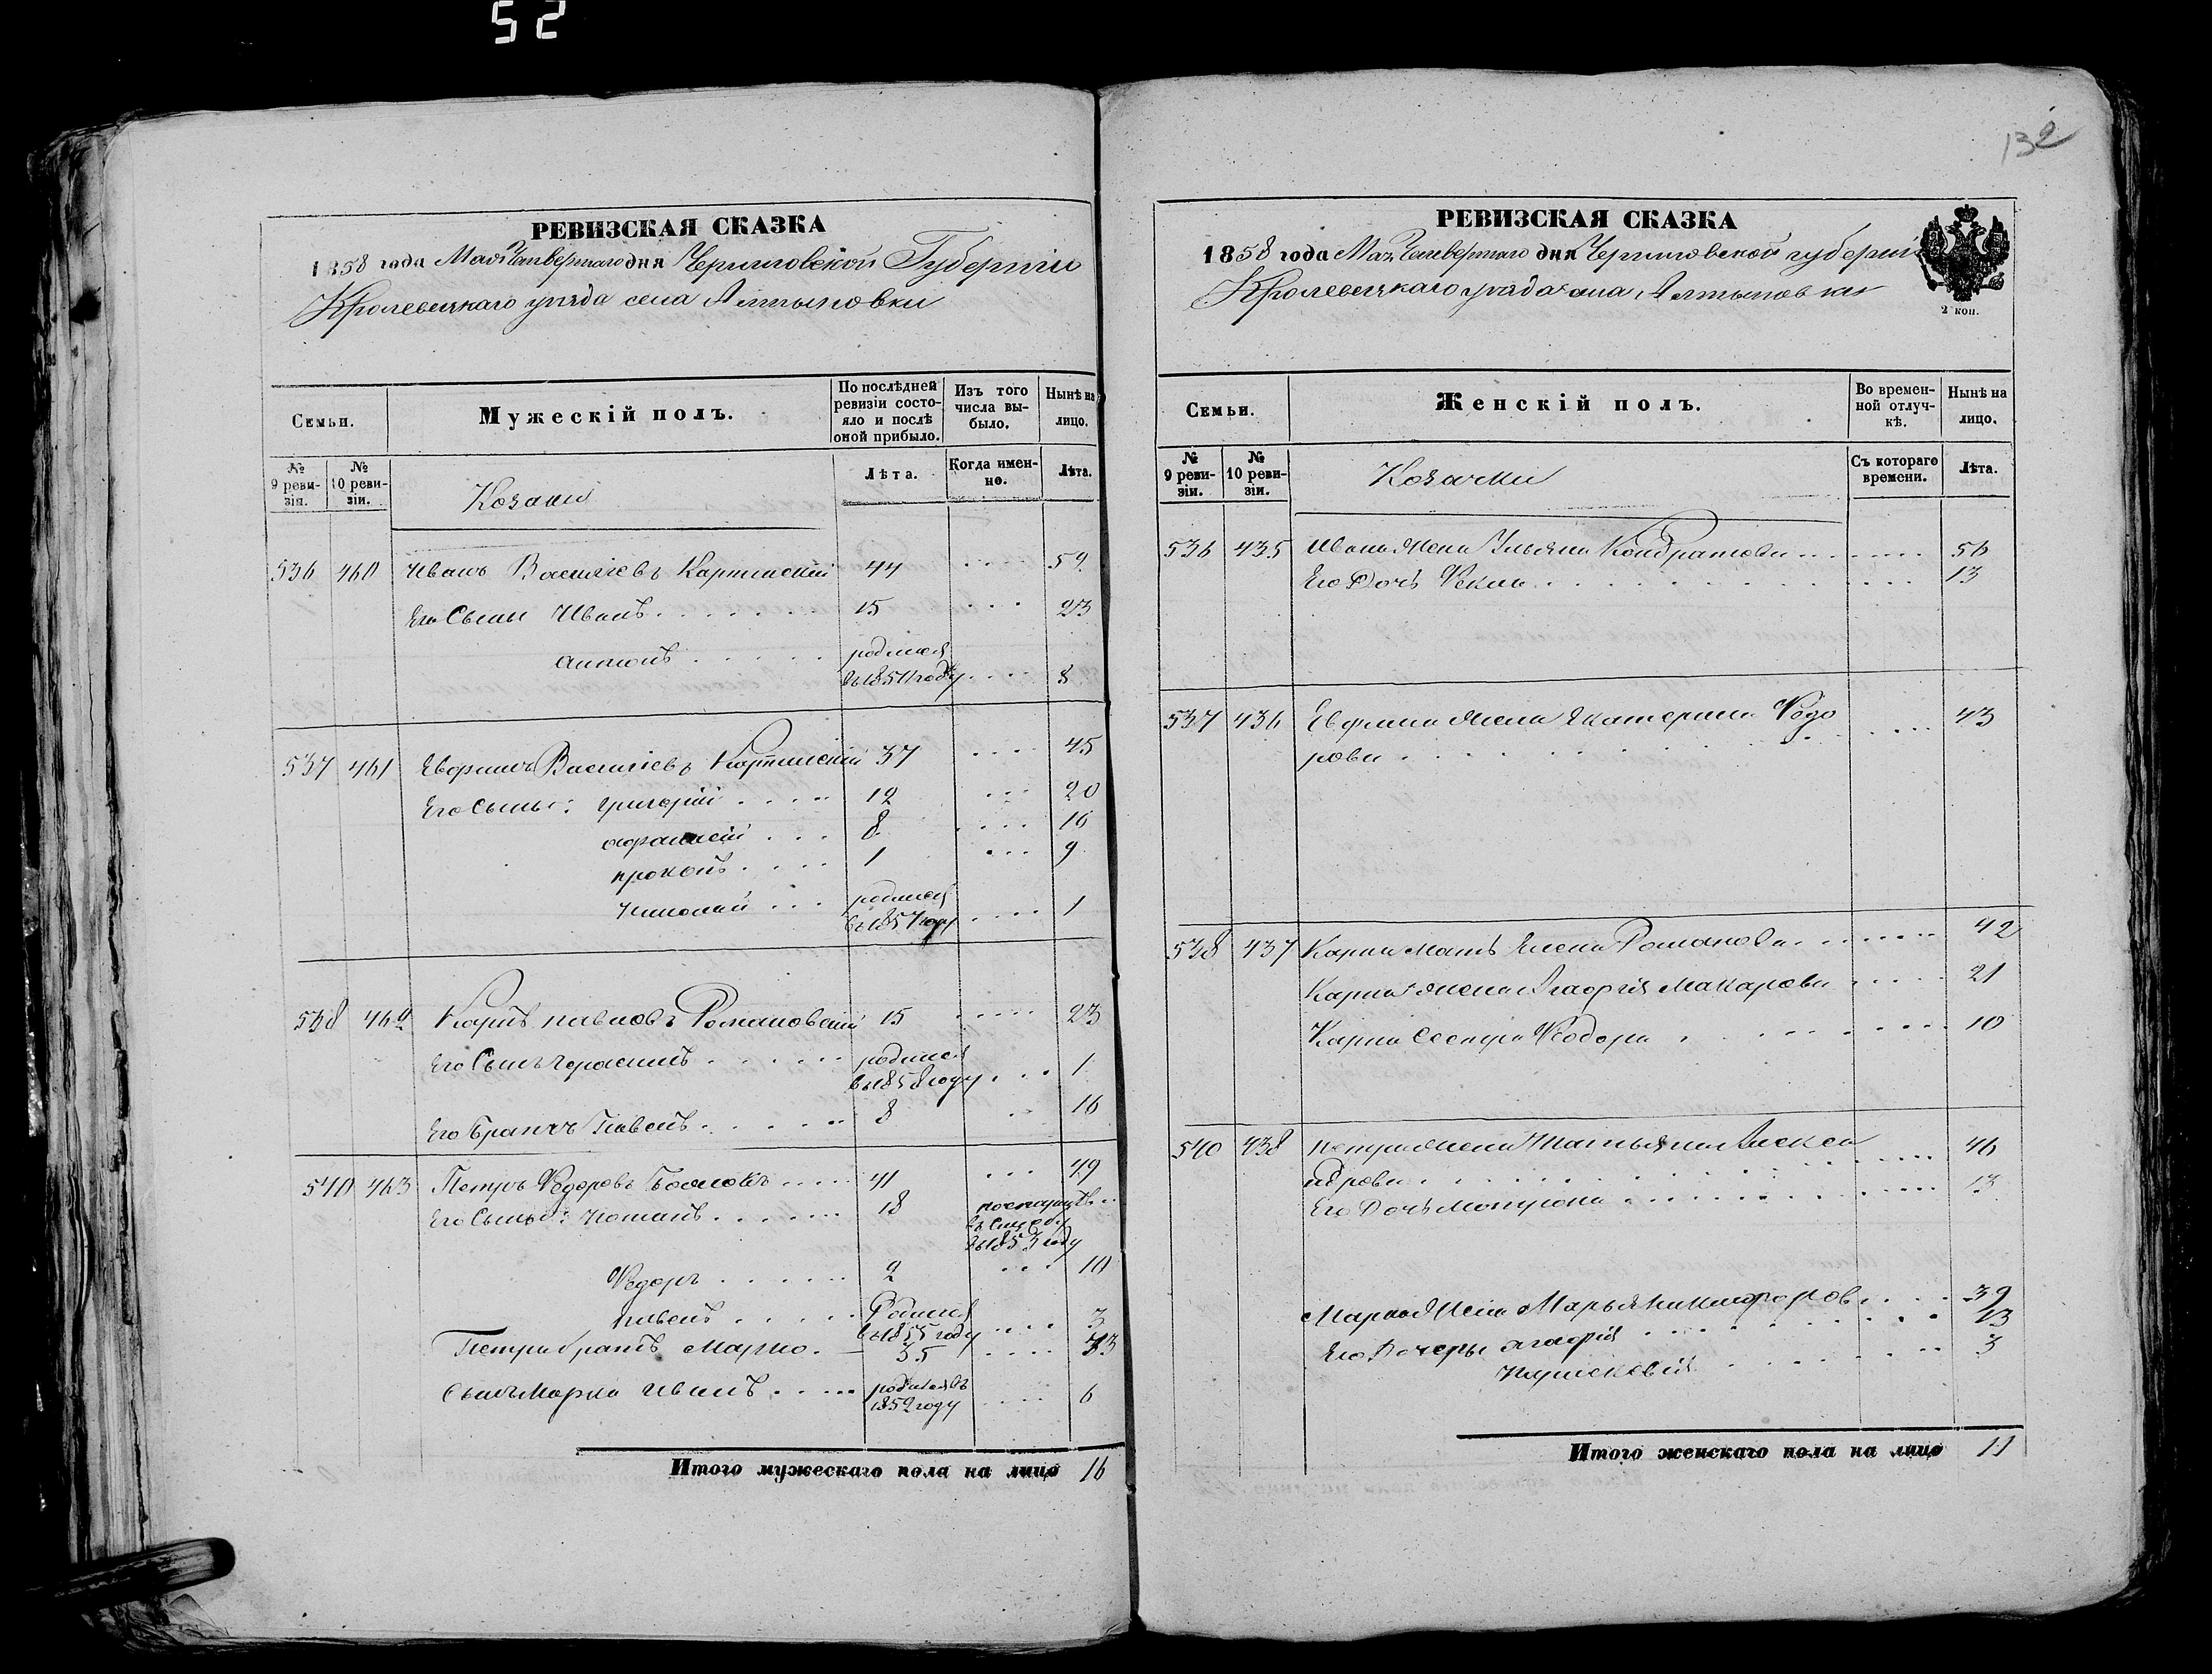 52
132
РЕВИЗСКАЯ СКАЗКА
1858 года Мая Четвертаго дня Черниговской Губернiи
Кролевецкаго уѣзда села Алтыновки
Семьи.
Мужескiй полъ.
По послѣдней ревизiи состояло и послѣ оной прибыло.
Изъ того числа выбыло.
Нынѣ на лицо.
№ 9 ревизiя.
№ 10 ревизiи.
Козаки
Лѣта.
Когда именно.
Лѣта.
536 460 Иванъ Васильевъ 44 .... 59
Его Сыны Иванъ....... 15 ... 23
Антонъ..... родился
въ 1850 году .... 8
537 461 Васильевъ 37 .... 45
Его Сыны: Григорiй.... 12 ... 20
Афанасiй... 8 .... 16
Прокопъ.... 1 ... 9
Николай... родился
въ 1857 году .... 1
538 462 Карпъ Павловъ Романовскiй 15 ..... 23
Его Сынъ Герасимъ...... родился
въ 1858 году ... 1
Его Братъ Павелъ...... 8 .. 16
540 463 Петръ Ѳедоровъ ..... 41 ... 49
Его Сыны: Потапъ...... 18 поступилъ
въ
въ 1853 году
Ѳедоръ...... 2 ... 10
Павелъ..... Родился
въ 1855 году .... 3
Петра братъ Марко. 35 .... 43
Сынъ Марка Иванъ..... родился въ
1852 году .... 6
Итого мужескаго пола на лицо 16
РЕВИЗСКАЯ СКАЗКА
1858 года Мая Четвертаго дня Черниговской губернiи
Кролевецкаго уѣзда села Алтыновки
2 коп.
Семьи.
Женскiй полъ.
Во временной отлучкѣ.
Нынѣ на лицо.
№ 9 ревизiи.
№ 10 ревизiи.
Козачки
Съ котораго времени.
Лѣта.
536 435 Ивана Жена Ульяна Кондратова....... 56
Его Дочь Ѳекла............ 13
537 436 Жена Екатерина Ѳедо
рова............ 43
538 437 Карпа мать Елена Романова....... 42
Карпа жена Агафiя Макарова..... 21
Карпа Сестра Ѳеодора........ 10
540 438 Петра Жена Татьяна Алексан
дрова............ 46
Его Дочь......... 13
Марка Жена Марья Никифорова.... 39
Его Дочери Агафiя........ 13
Параскевiя...... 3
Итого женскаго пола на лицо 11